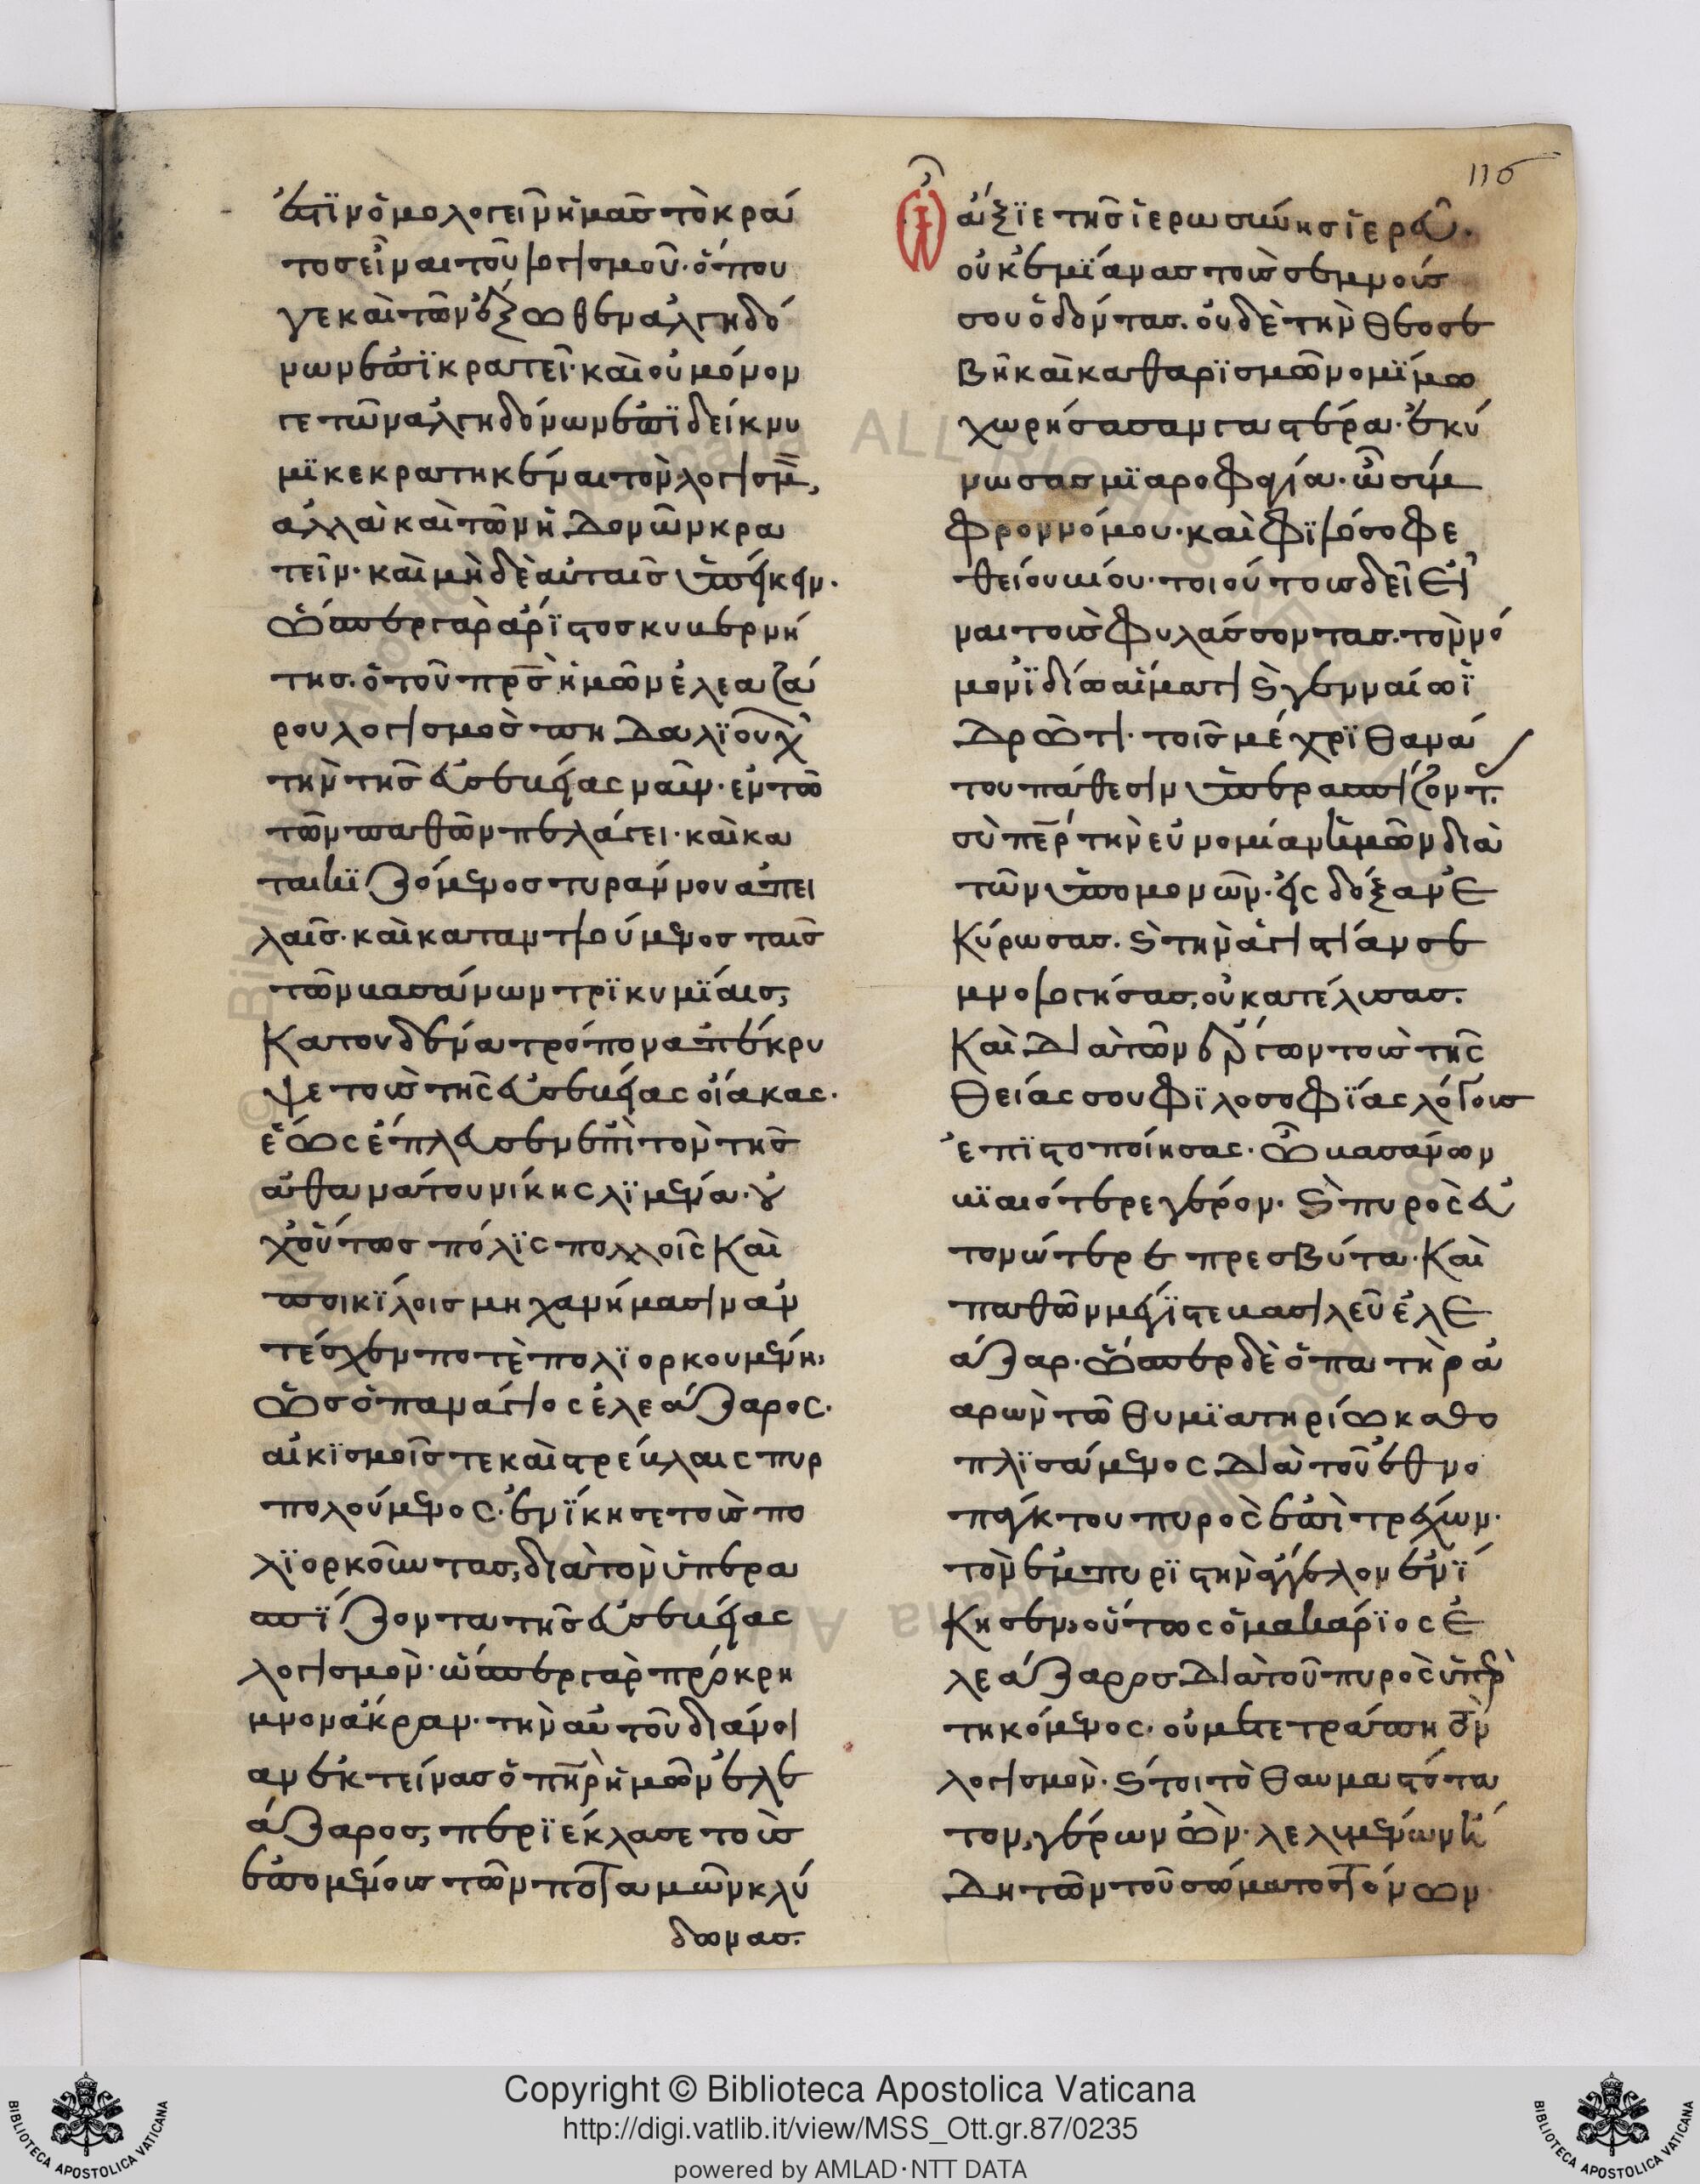 116
ἐστὶν ὁμολογεῖν ἡμᾶς τὸ κρά
τος εἶναι τοῦ λογισμοῦ· ὅπου
γε καὶ τῶν ἔξωθεν ἀλγηδό
νων ἐπικρατεῖ· καὶ οὐ μόνον
γε τῶν ἀλγηδόνων ἐπιδείκνυ
μι κεκρατηκέναι τὸν λογισμ,
ἀλλὰ καὶ τῶν ἡδονῶν κρα
τεῖν· καὶ μηδὲ αὐταῖς ὑπείκειν.
ὥσπερ γὰρ ἄριστος κυβερνή
της. ὁ τοῦ πρς ἡμῶν ἐλεαζά
ρου λογισμὸς πηδαλιουχ
τὴν τῆς εὐσεβείας ναῦν· ἐν τῶ
τῶν παθῶν πελάγει· καὶ κα
ταικιζόμενος τυράννου ἀπει
λαῖς· καὶ καταντλούμενος ταῖς
τῶν βασάνων τρικυμίαις,
κατ' οὐδένα τρόπον ἀπέκρυ
ψε τοὺς τῆς εὐσεβείας οἴακας.
ἕως ἔπλευσεν ἐπὶ τὸν τῆς
ἀθανάτου νίκης λιμένα· οὐ
χ οὕτως πόλις πολλοῖς καὶ
ποικίλοις μηχανήμασιν ἀν
τέσχεν ποτὲ πολιορκουμένη,
ὡς ὁ πανάγιος ἐλεάζαρος.
αἰκισμοῖς τε καὶ στρέβλαις πυρ
πολούμενος· ἐνίκησε τοὺς πο
λιορκοῦντας, διὰ τὸν ὑπερα
σπίζοντα τῆς εὐσεβείας
λογισμὸν· ὥσπερ γὰρ πρόκρη
μνον ἄκραν· τὴν αὐτοῦ διάνοι
αν ἐκτείνας ὁ πηρ ἡμῶν ἐλε
άζαρος, περιέκλασε τοὺς
ἐπομένους τῶν παθῶν κλύ
δωνας.
Ὦ ἄξιε τῆς ἱερωσύνης ἱερεῦ.
οὐκ ἐμίανας τοὺς σεμνούς
σου ὀδόντας. οὐδὲ τὴν θεοσε
βῆ καὶ καθαρισμῶν νομίμω
χωρήσασαν γαστέρα· ἐκύ
νωσας μιαροφαγία· ὦ σύμ
φρον νόμου· καὶ φιλόσοφε
θείου βίου· τοιούτους δεῖ εἶ
ναι τοὺς φυλάσσοντας· τὸν νό
μον ἰδίω αἵματι καὶ γενναίω ἱ
δρῶτι· τοῖς μέχρι θανά
του πάθεσιν ὑπερασπίζοντ.
σὺ περ τὴν εὐνομίαν ἡμῶν διὰ
τῶν ὑπομονῶν· εἰς δόξαν ἐ
κύρωσας. καὶ τὴν ἁγιστίαν σε
μνολογήσας, οὐ κατέλυσας.
καὶ διὰ τῶν ἔργων τοὺς τῆς
θείας σου φιλοσοφίας λόγους
ἐπιστοποίησας. ὦ βασάνων
βιαιότερε γέρον. καὶ πυρὸς εὐ
τονώτερε πρεσβύτα. καὶ
παθῶν μέγιστε βασιλεῦ ἐλε
άζαρ. ὥσπερ δὲ ὁ πατὴρ ἀ
αρὼν τῶ θυμιατηρίω καθο
πλισάμενος διὰ τοῦ ἐθνο
πλήκτου πυρὸς ἐπιτρέχων.
τὸν ἐμπυριστὴν ἄγγελον ἐνί
κησεν, οὕτως ὁ μακάριος ἐ
λεάζαρος διὰ τοῦ πυρὸς ὑπερ
τηκόμενος. οὐ μετετράπη τὸν
λογισμὸν. καίτοι τὸ θαυμαστότα
τον, γέρων ὢν. λελυμένων ἤ
δη τῶν τοῦ σώματος τόνων
Copyright © Biblioteca Apostolica Vaticana
http://digi.vatlib.it/view/MSS_Ott.gr.87/0235
powered by AMLAD·NTT DATA
BIBLIOTECA APOSTOLICA VATICANA
BIBLIOTECA APOSTOLICA VATICANA